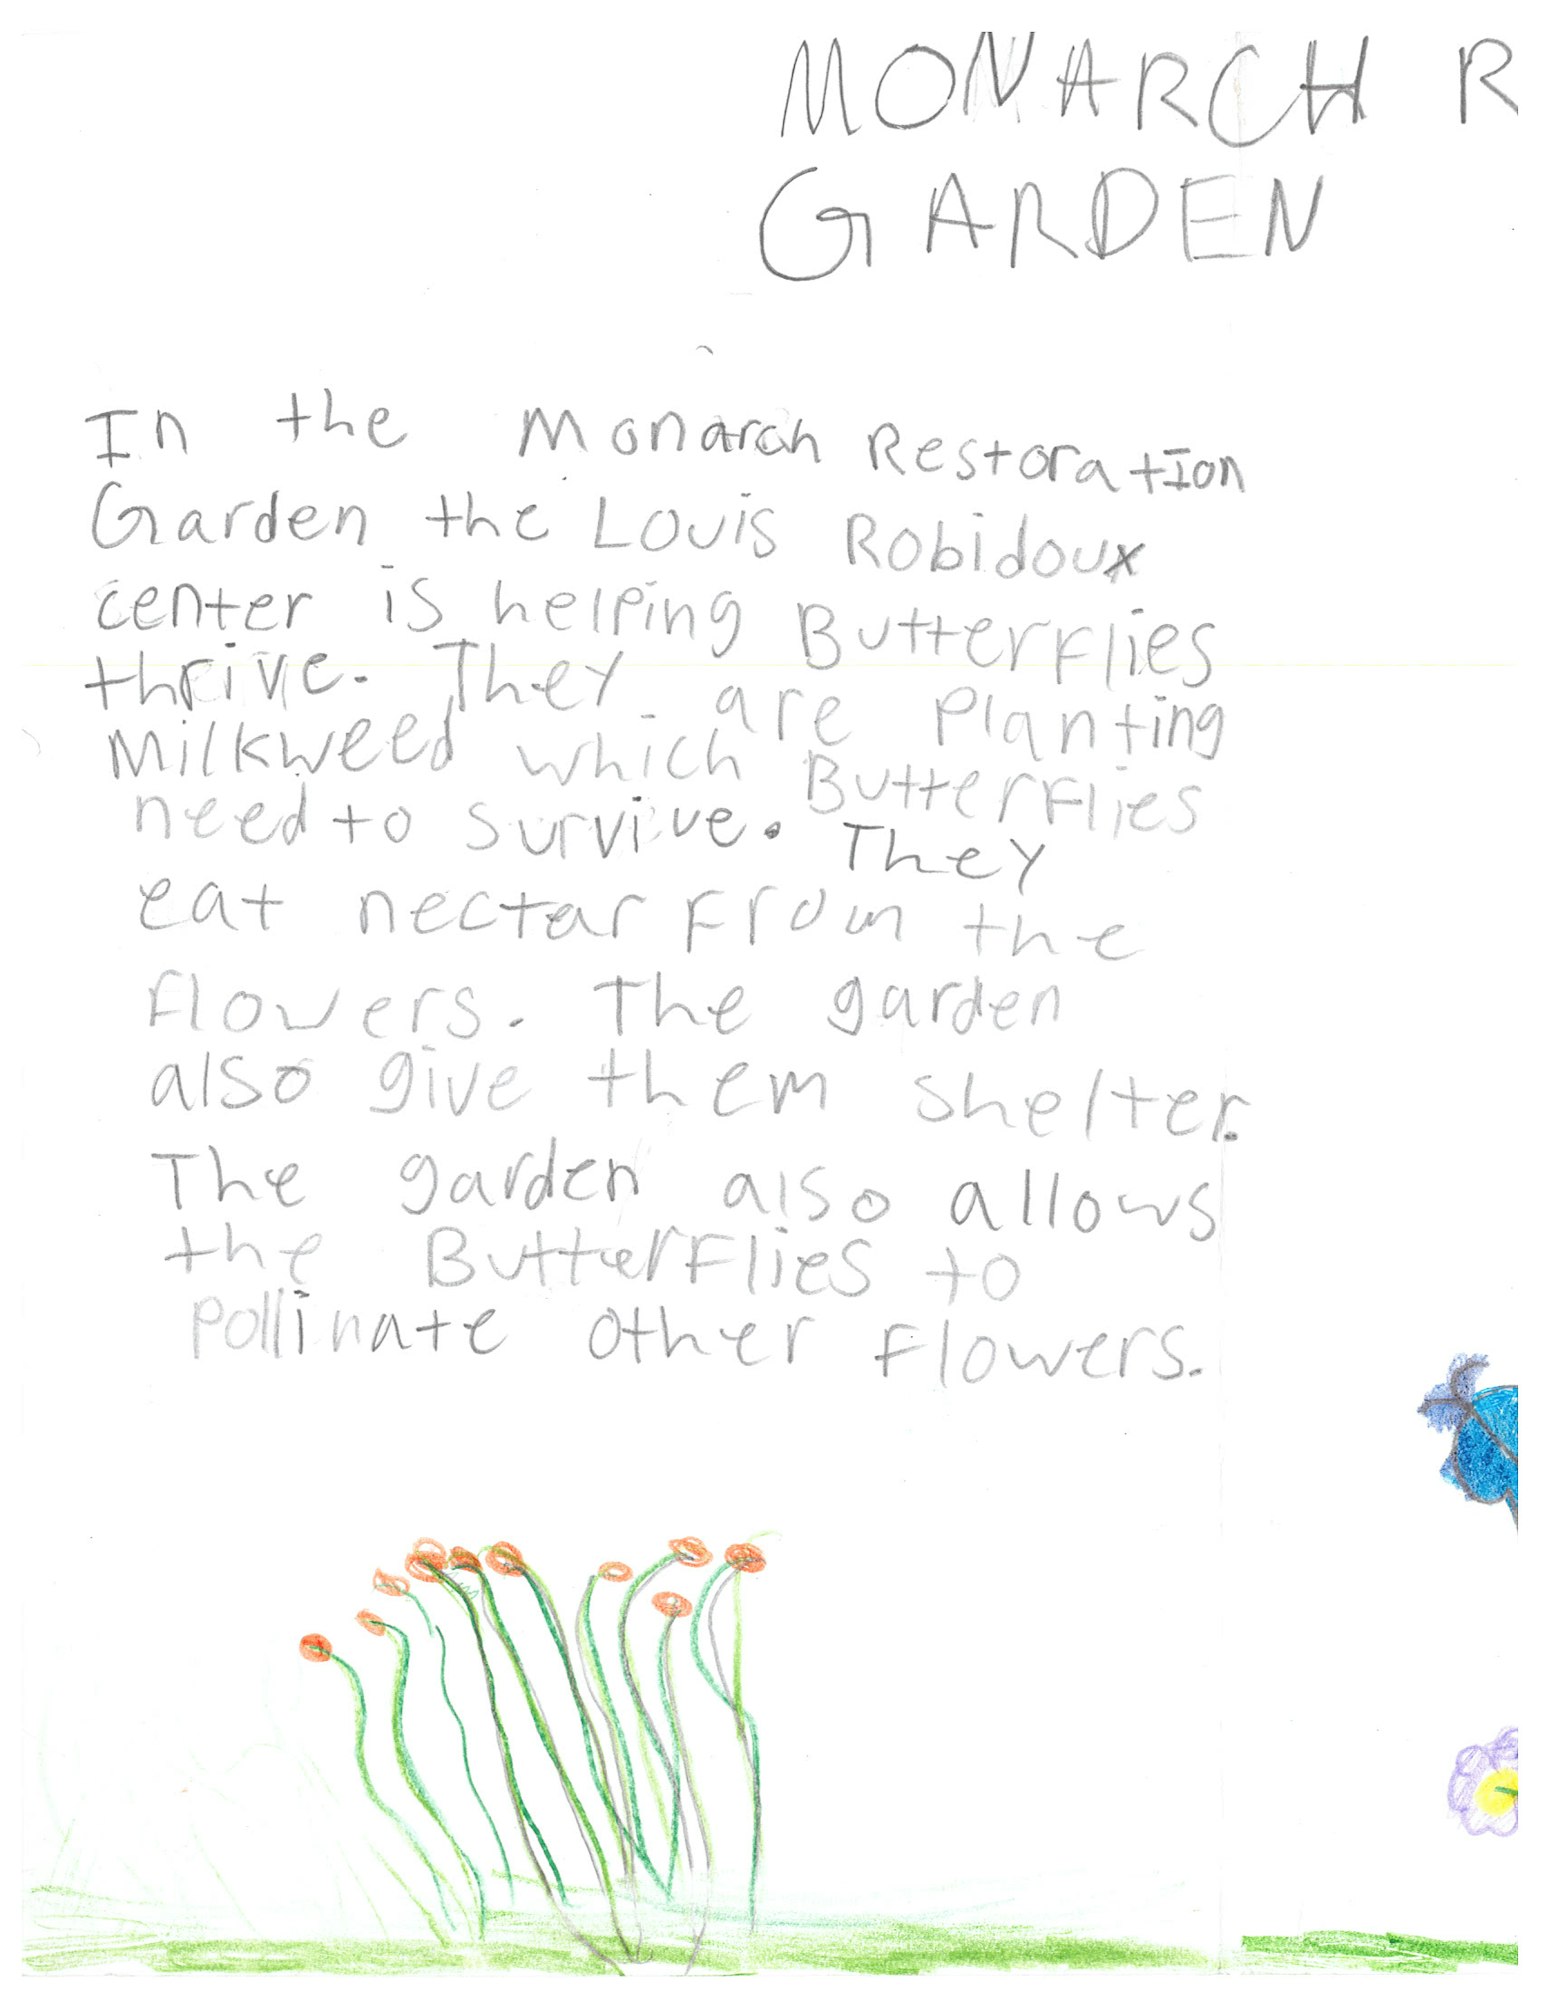 MONARCH R
GARDEN
In the Monarch Restoration
Garden the Louis Robidoux
center is helping Butterflies
thrive. They are planting
Milkweed which Butterflies
need to survive. They
eat nectar from the
flowers. The garden
also give them shelter.
The garden also allows
the Butterflies to
pollinate other flowers.